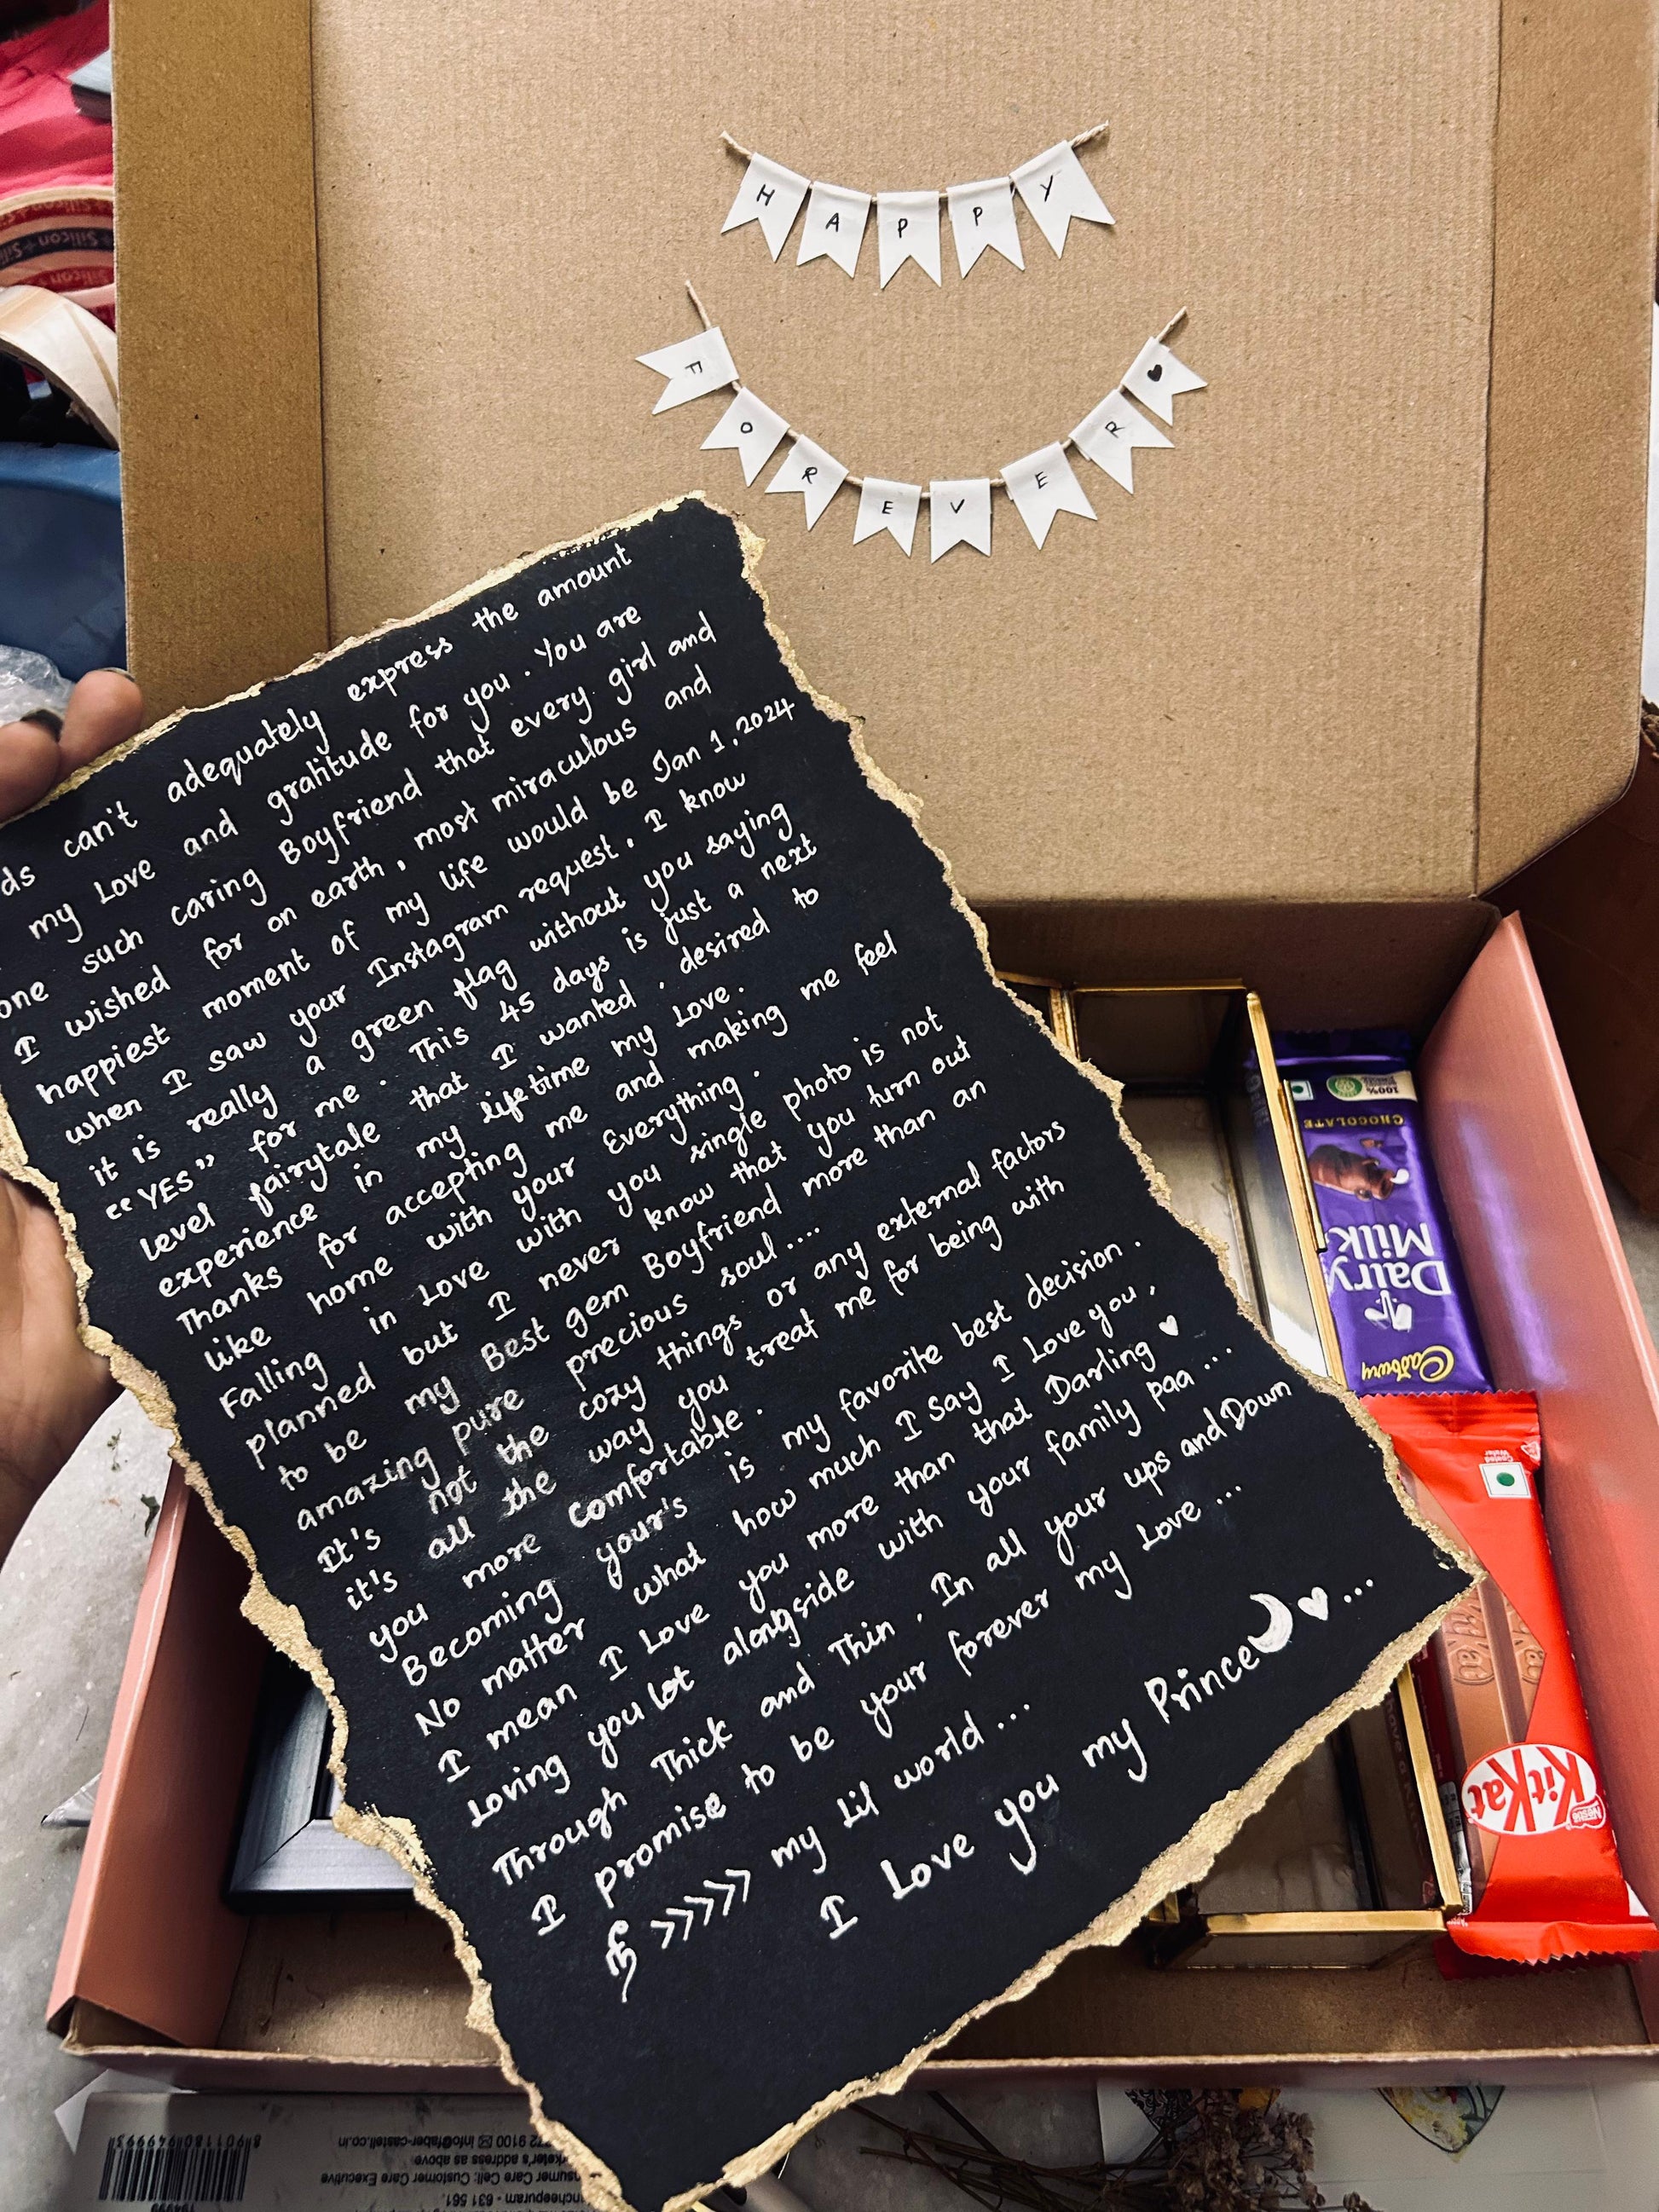 HAPPY
FOREVER ♥
ds can't adequately express the amount
my Love and gratitude for you. You are
one such caring Boyfriend that every girl and
I wished for on earth, most miraculous and
happiest moment of my life would be Jan 1, 2024
when I saw your Instagram request. I know
it is really a green flag without you saying
"YES" for me. This 45 days is just a next
level fairytale that I wanted, desired to
experience in my lifetime my Love.
Thanks for accepting me and making me feel
like home with your Everything.
Falling in Love with you single photo is not
planned but I never know that you turn out
to be my Best gem Boyfriend more than an
amazing pure precious soul....
It's not the cozy things or any external factors
it's all the way you treat me for being with
you more comfortable.
Becoming your's is my favorite best decision.
No matter what how much I say I Love you,
I mean I Love you more than that Darling ♥
Loving you lot alongside with your family paa....
Through Thick and Thin, In all your ups and Down
I promise to be your forever my Love...
நீ >>>>> my Lil world...
I Love you my Prince🌙♥...
100%
CHOCOLATE
Dairy
Milk
Cadbury
Nestle
KitKat
Silicon
8 901180 949993
info@faber-castell.co.in
Customer Care Executive
631 561.